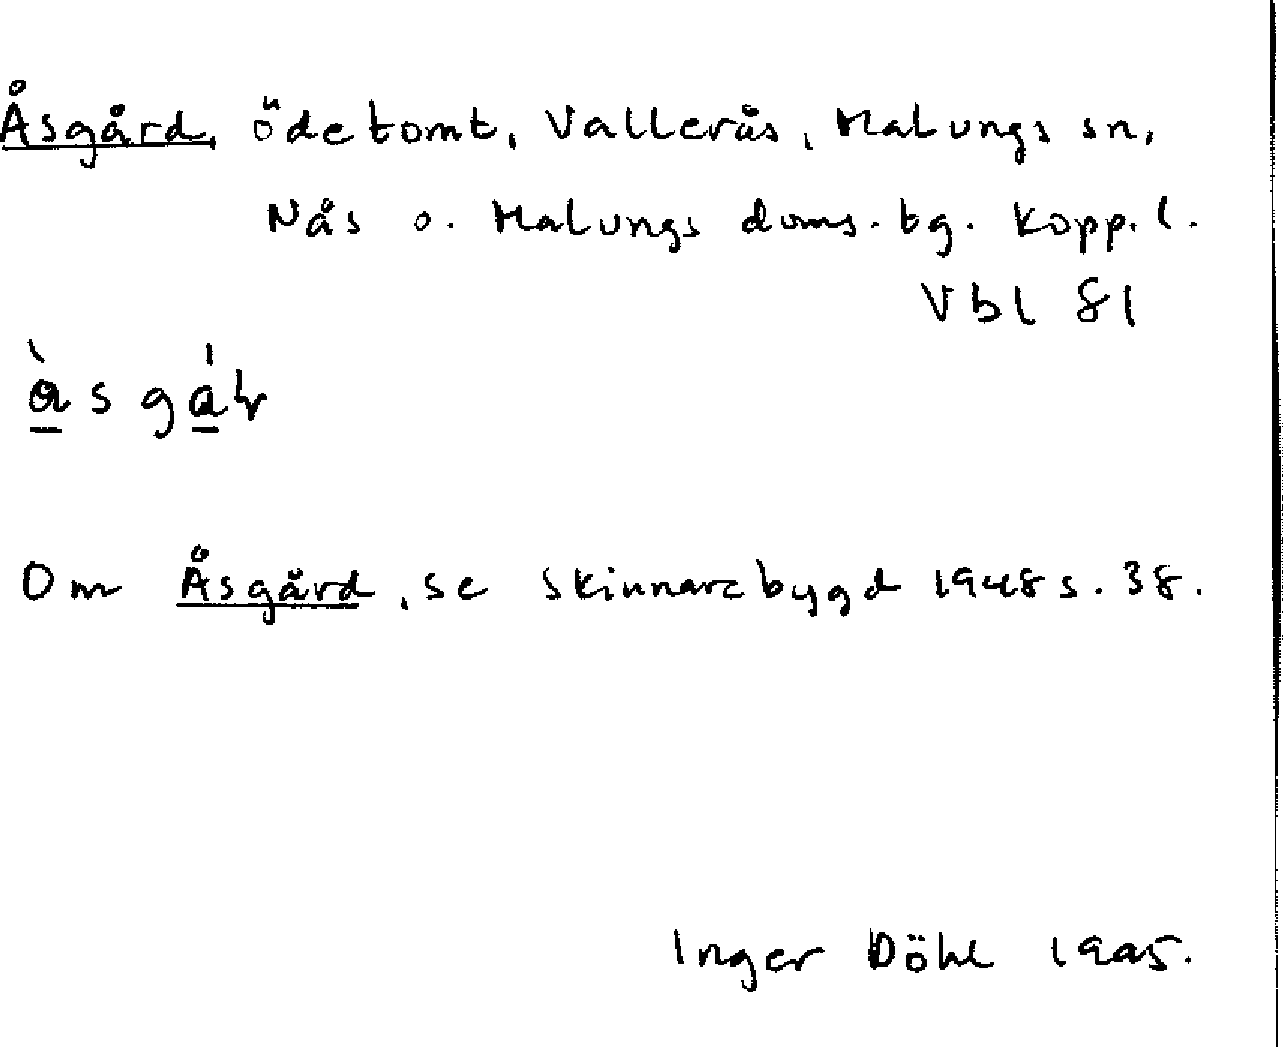 Åsgård, ödetomt, Vallerås, Malungs sn,
Nås o. Malungs doms. bg. Kopp. l.
Vbl 81
Om Åsgård, se Skinnarebygd 1948 s. 38.
Inger Döhl 1995.